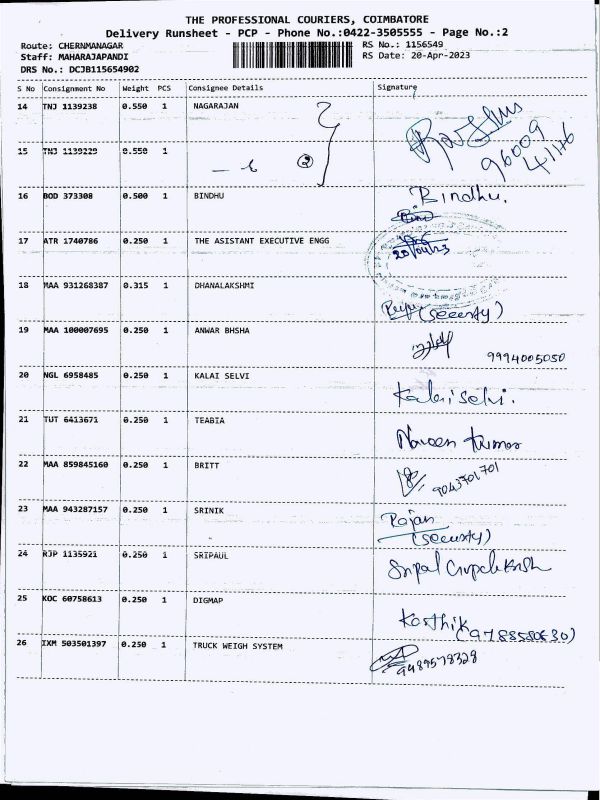 THE PROFESSIONAL COURIERS, COIMBATORE
Delivery Runsheet - PCP - Phone No.:0422-3505555 - Page No.:2
Route: CHERNMANAGAR RS No.: 1156549
Staff: MAHARAJAPANDI RS Date: 20-Apr-2023
DRS No.: DCJB115654902
S No Consignment No Weight PCS Consignee Details Signature
14 TNJ 1139238 0.550 1 NAGARAJAN
96009
41146
15 TNJ 1139229 0.550 1
2
16 BOD 373308 0.500 1 BINDHU Bindhu.
17 ATR 1740786 0.250 1 THE ASISTANT EXECUTIVE ENGG
20/04/23
18 MAA 931268387 0.315 1 DHANALAKSHMI
(Security)
19 MAA 100007695 0.250 1 ANWAR BHSHA
9994005050
20 NGL 6958485 0.250 1 KALAI SELVI
Kalaiselvi.
21 TUT 6413671 0.250 1 TEABIA
Naveen Kumar
22 MAA 859845160 0.250 1 BRITT
9043701701
23 MAA 943287157 0.250 1 SRINIK
Rajan
(Security)
24 RJP 1135921 0.250 1 SRIPAUL
25 KOC 60758613 0.250 1 DIGMAP
Karthik
(9788580630)
26 IXM 503501397 0.250 1 TRUCK WEIGH SYSTEM
9489578328